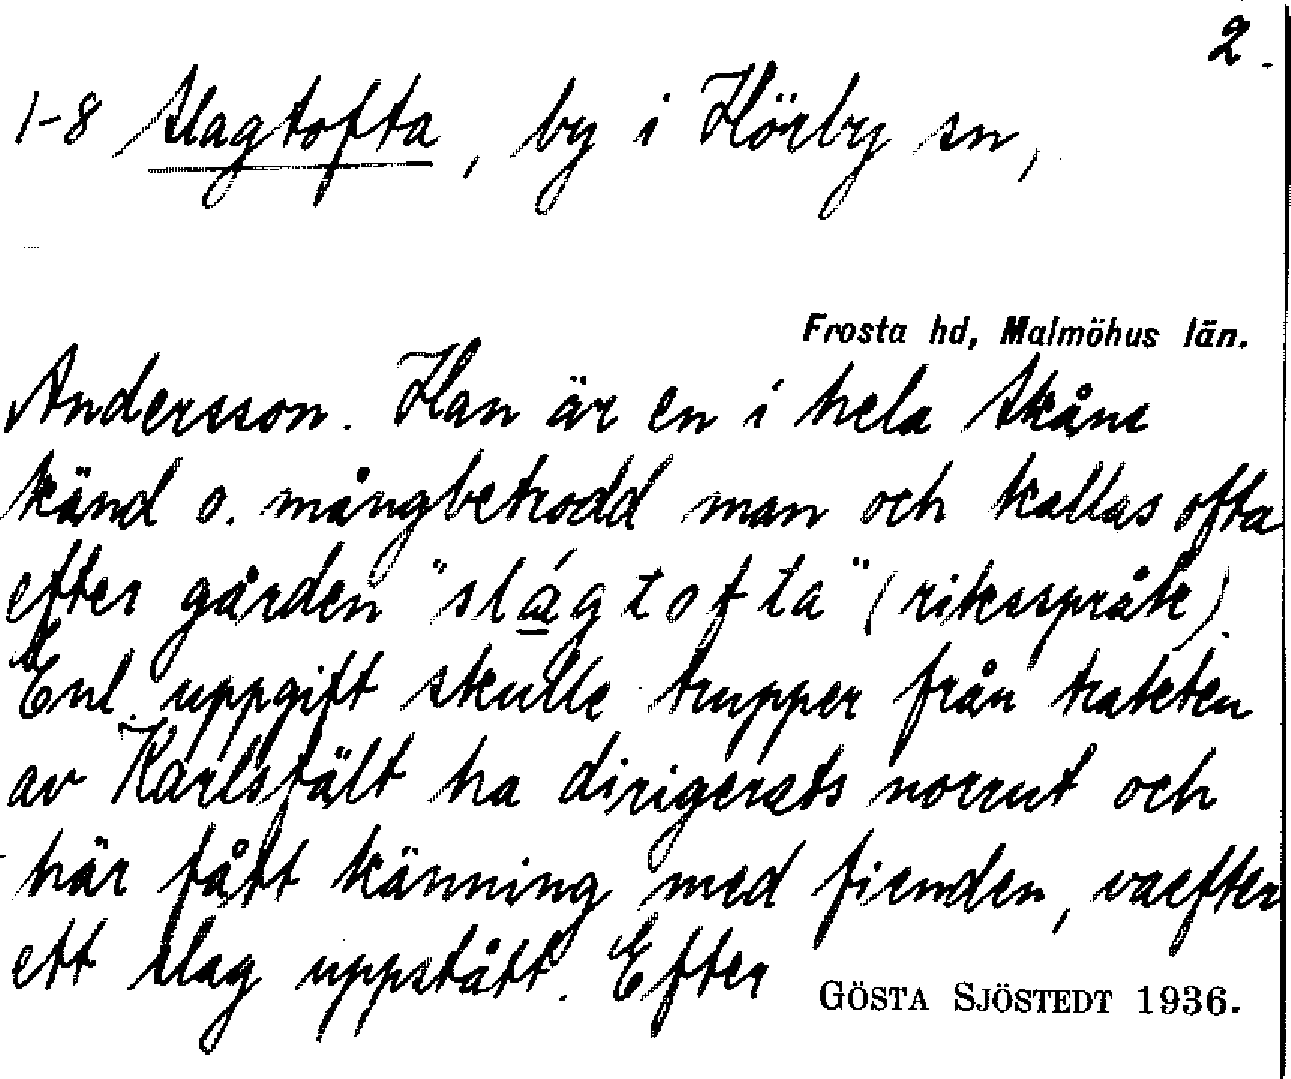 2.
1-8 Slagtofta, by i Hörby sn,
Frosta hd, Malmöhus län.
Andersson. Han är en i hela Skåne
känd o. mångbetrodd man och kallas ofta
efter gården "slágtofta" (riksspråk).
Enl. uppgift skulle trupper från trakten
av Karlsfält ha dirigerats norrut och
här fått känning med fienden, varefter
ett slag uppstått. Efter
GÖSTA SJÖSTEDT 1936.